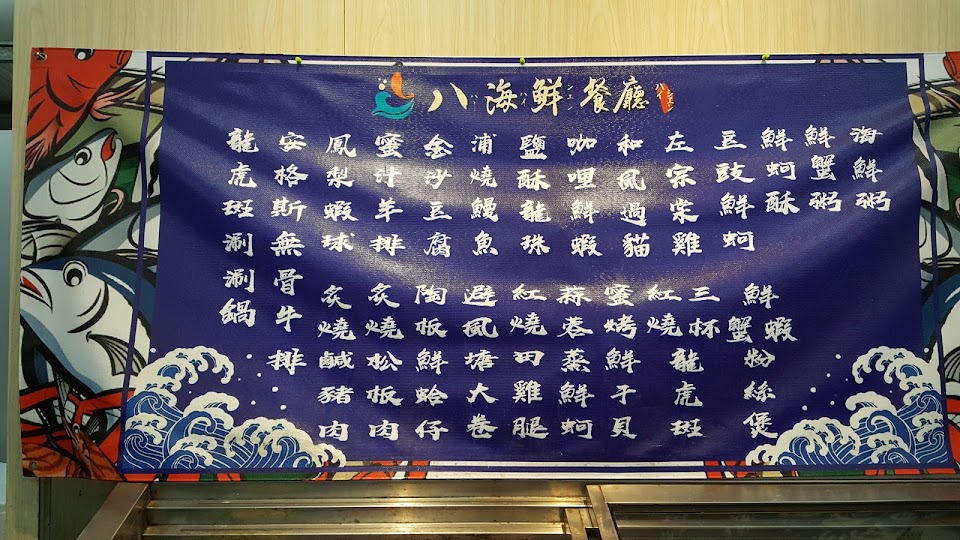 八海鮮餐廳
海鮮粥
鮮蟹粥
鮮蚵酥
豆豉鮮蚵
左宗棠雞
和風過貓
咖哩鮮蝦
鹽酥龍珠
浦燒鰻魚
金沙豆腐
蜜汁羊排
鳳梨蝦球
安格斯無骨牛排
龍虎斑涮涮鍋
鮮蝦蟹粉絲煲
三杯紅燒龍虎斑
蜜烤鮮干貝
蒜蓉蒸鮮蚵
紅燒田雞腿
避風塘大卷
陶板鮮蛤仔
炙燒松板肉
炙燒鹹豬肉